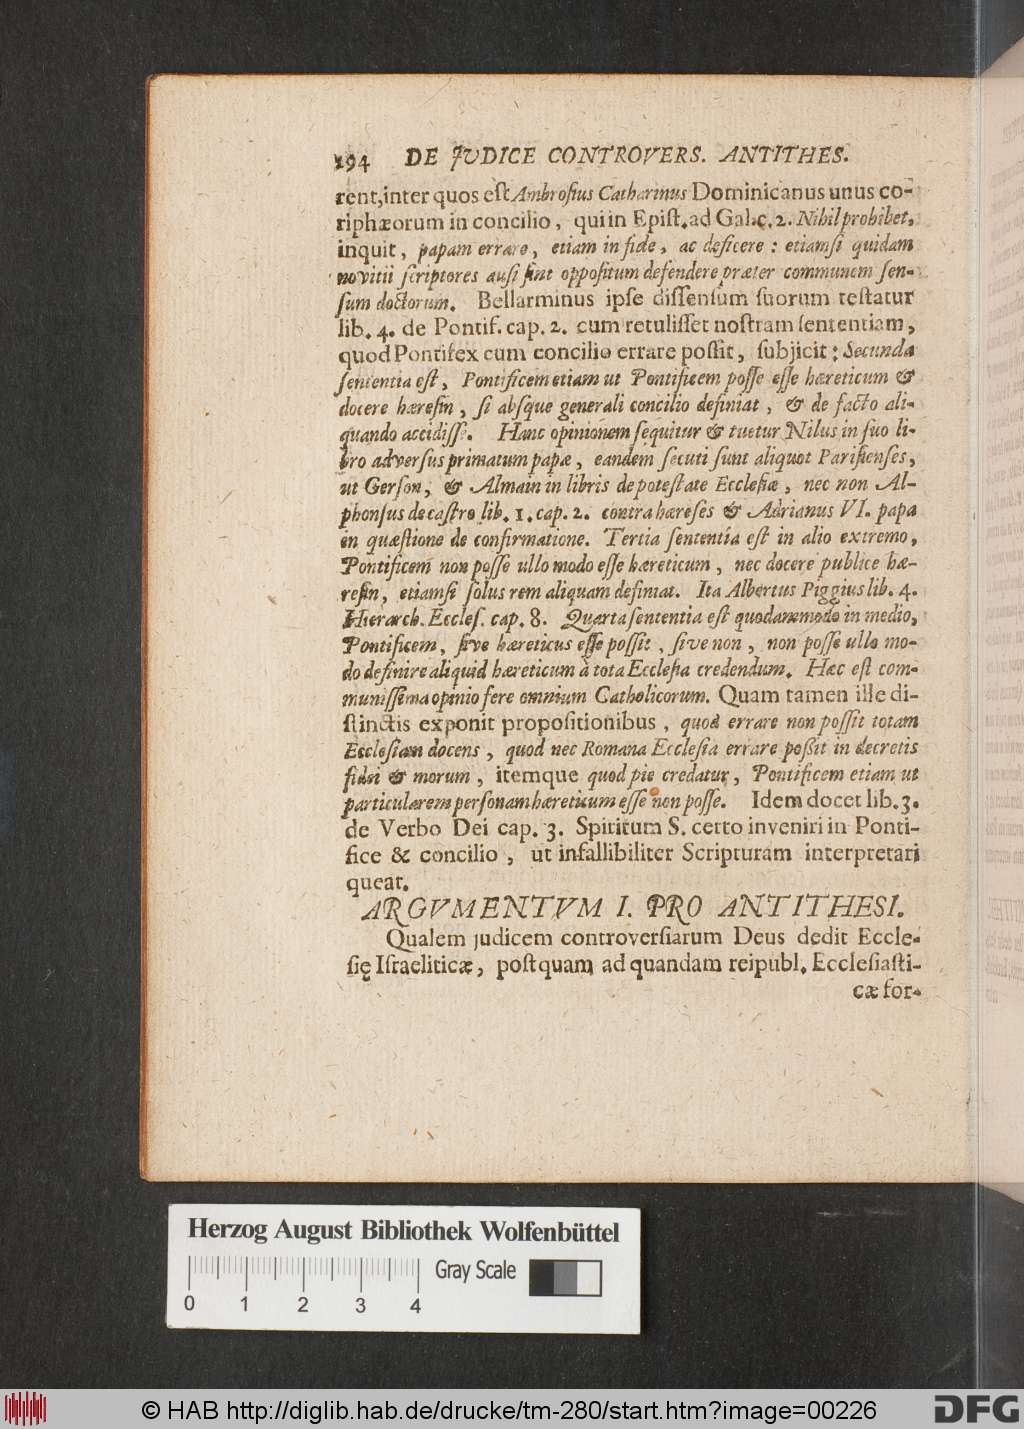 194 DE JVDICE CONTROVERS. ANTITHES.
rent, inter quos eſt Ambroſius Catharinus Dominicanus unus co-
riphæorum in concilio, qui in Epiſt. ad Gal. c. 2. Nihil prohibet,
inquit, papam errare, etiam in fide, ac deficere: etiamſi quidam
novitii ſcriptores auſi ſint oppoſitum defendere præter communem ſen-
ſum doctorum. Bellarminus ipſe diſſenſum ſuorum teſtatur
lib. 4. de Pontif. cap. 2. cum retuliſſet noſtram ſententiam,
quod Pontifex cum concilio errare poſſit, ſubjicit: Secunda
ſententia eſt, Pontificem etiam ut Pontificem poſſe eſſe hæreticum &
docere hæreſin, ſi abſque generali concilio definiat, & de facto ali-
quando accidiſſe. Hanc opinionem ſequitur & tuetur Nilus in ſuo li-
bro adverſus primatum papæ, eandem ſecuti ſunt aliquot Pariſienſes,
ut Gerſon, & Almain in libris de poteſtate Eccleſiæ, nec non Al-
phonſus de caſtro lib. 1. cap. 2. contra hæreſes & Adrianus VI. papa
in quæſtione de confirmatione. Tertia ſententia eſt in alio extremo,
Pontificem non poſſe ullo modo eſſe hæreticum, nec docere publice hæ-
reſin, etiamſi ſolus rem aliquam definiat. Ita Albertus Piggius lib. 4.
Hierarch. Eccleſ. cap. 8. Quarta ſententia eſt quodammodo in medio,
Pontificem, ſive hæreticus eſſe poſſit, ſive non, non poſſe ullo mo-
do definire aliquid hæreticum à tota Eccleſia credendum. Hæc eſt com-
muniſſima opinio fere omnium Catholicorum. Quam tamen ille di-
ſtinctis exponit propoſitionibus, quod errare non poſſit totam
Eccleſiam docens, quod nec Romana Eccleſia errare poßit in decretis
fidei & morum, itemque quod pie credatur, Pontificem etiam ut
particularem perſonam hæreticum eſſe non poſſe. Idem docet lib. 3.
de Verbo Dei cap. 3. Spiritum S. certo inveniri in Ponti-
fice & concilio, ut infallibiliter Scripturam interpretari
queat.
ARGVMENTVM I. PRO ANTITHESI.
Qualem judicem controverſiarum Deus dedit Eccle-
ſię Iſraeliticæ, poſtquam ad quandam reipubl. Eccleſiaſti-
cæ for-
Herzog August Bibliothek Wolfenbüttel
Gray Scale
0 1 2 3 4
© HAB http://diglib.hab.de/drucke/tm-280/start.htm?image=00226
DFG